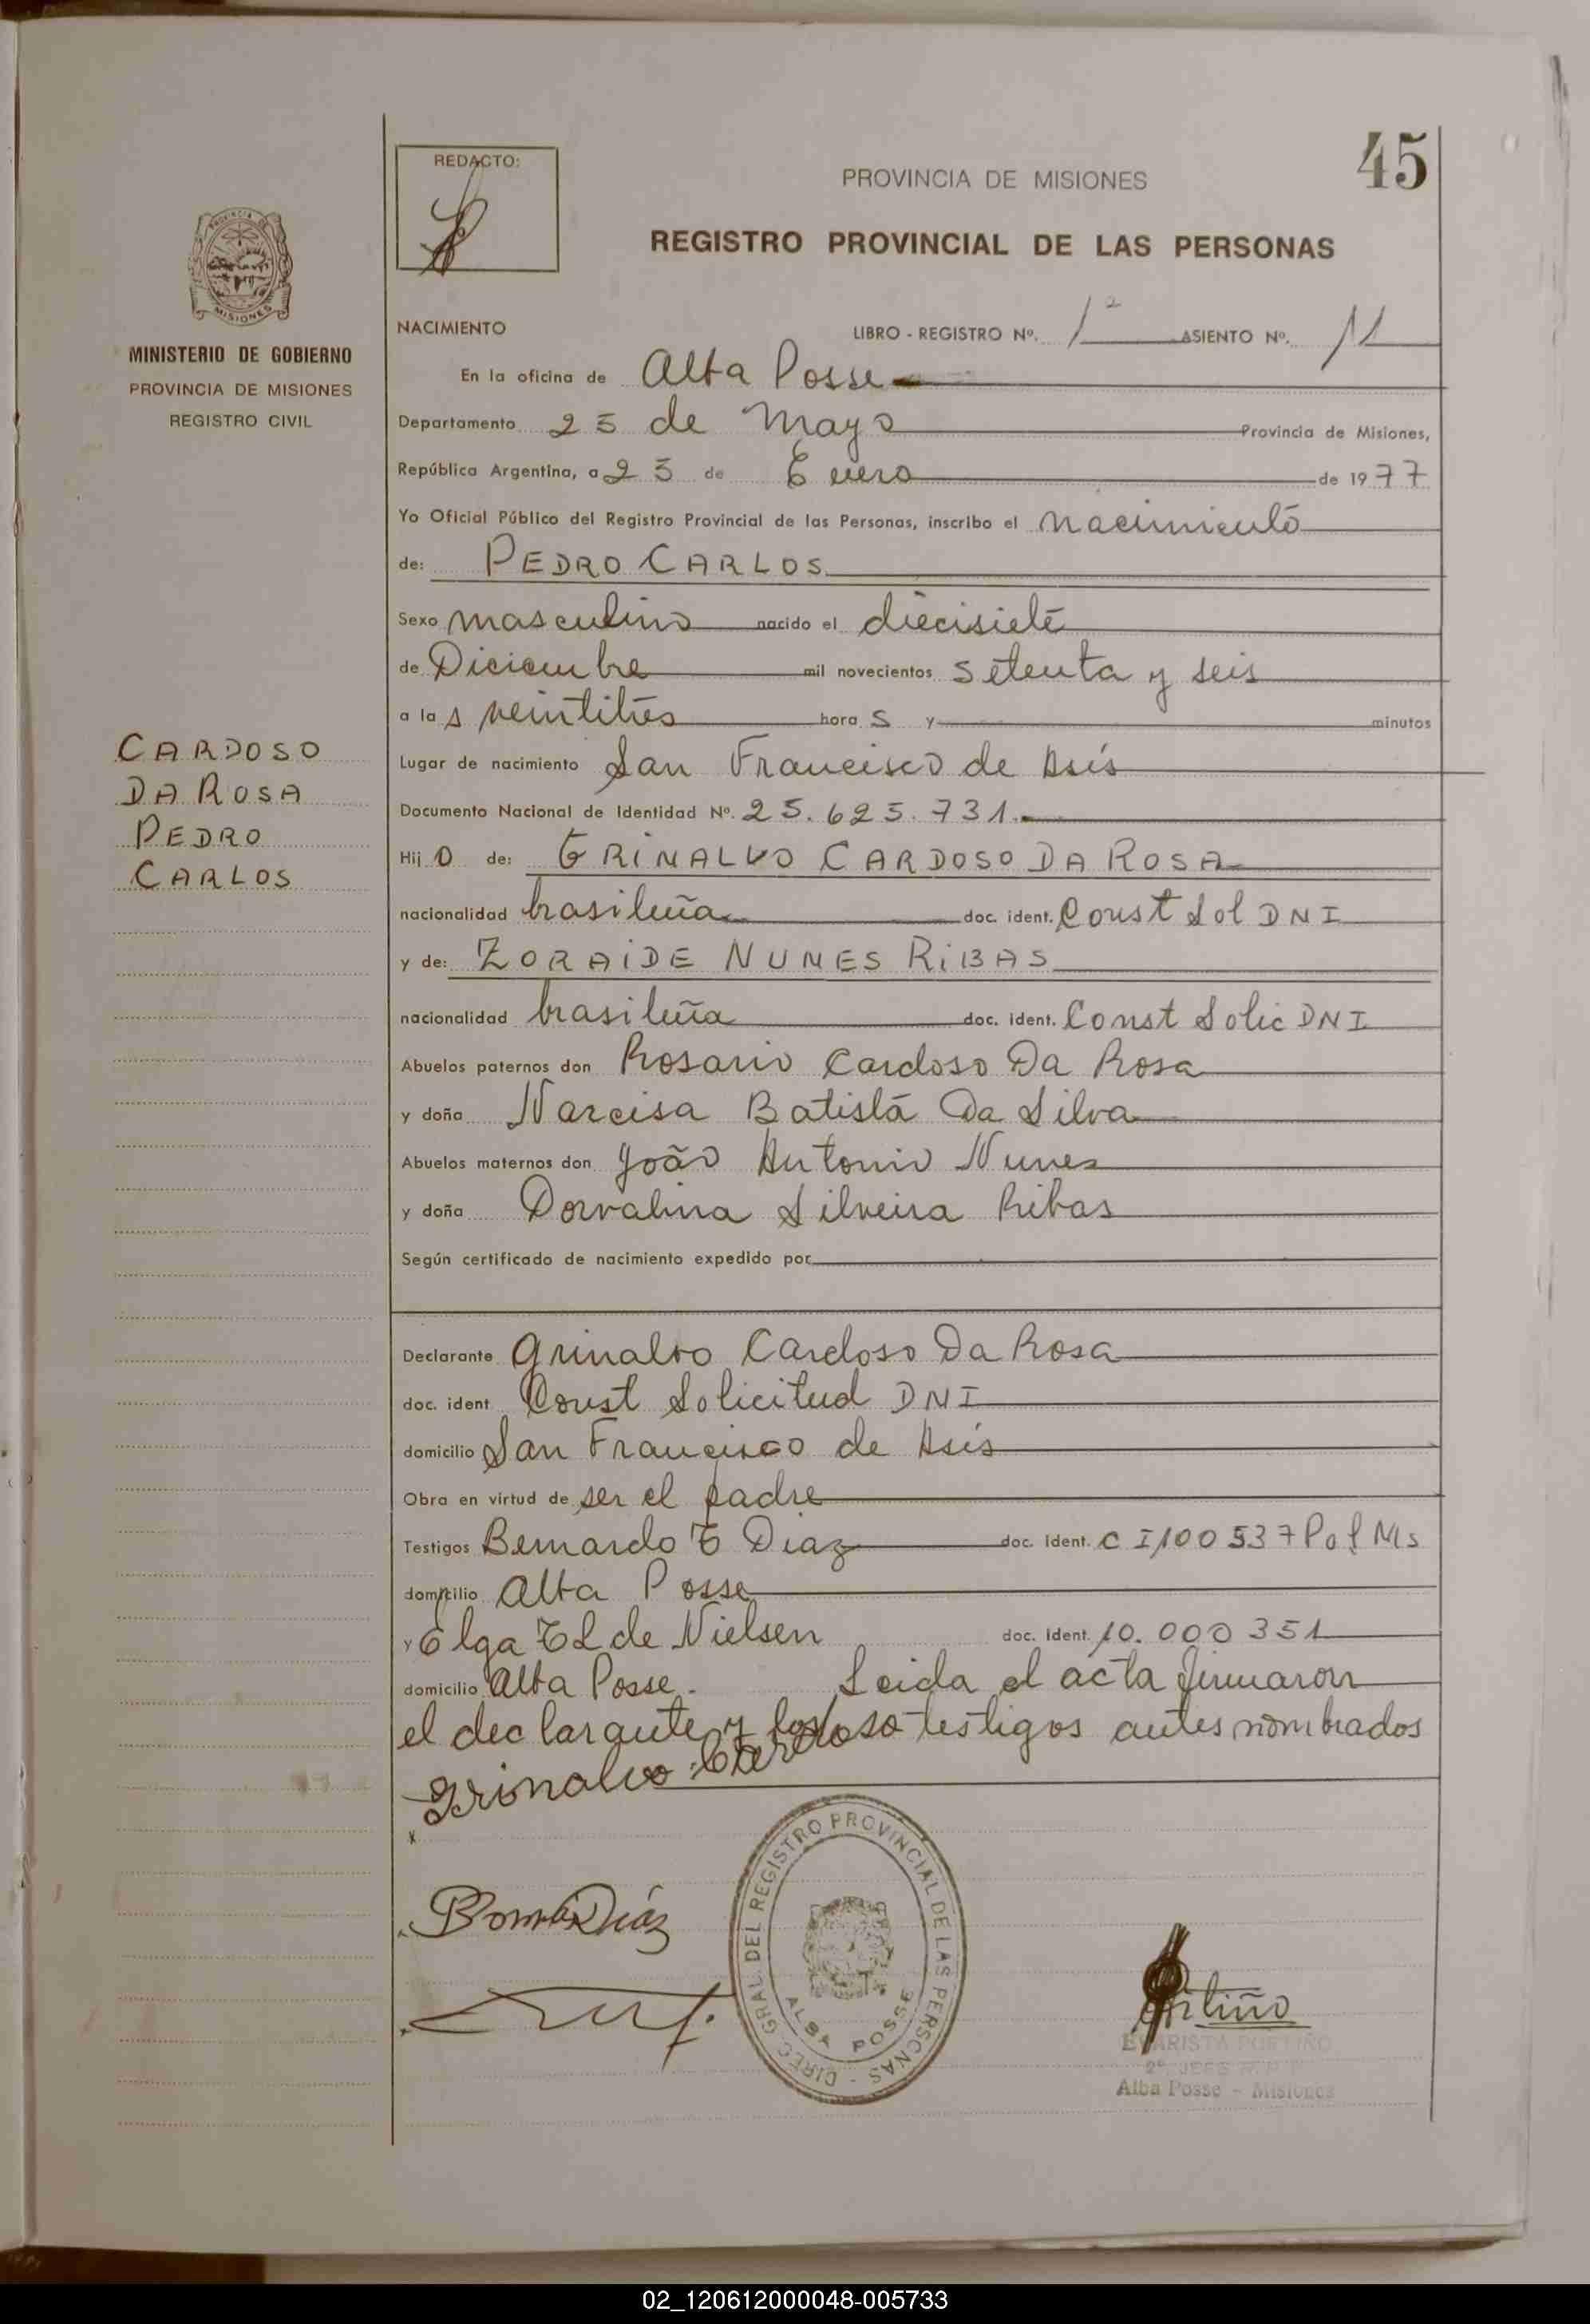 45
REDACTO:
PROVINCIA DE MISIONES
REGISTRO PROVINCIAL DE LAS PERSONAS
MINISTERIO DE GOBIERNO
PROVINCIA DE MISIONES
REGISTRO CIVIL
NACIMIENTO LIBRO - REGISTRO Nº. 1º ASIENTO Nº. 11
En la oficina de Alba Posse
Departamento 25 de Mayo Provincia de Misiones,
República Argentina, a 25 de Enero de 1977
Yo Oficial Público del Registro Provincial de las Personas, inscribo el nacimiento
de: PEDRO CARLOS
Sexo masculino nacido el diecisiete
de Diciembre mil novecientos setenta y seis
a las veintitrés horas y minutos
Lugar de nacimiento San Francisco de Asís
Documento Nacional de Identidad Nº. 25.625.731.
Hijo de: GRINALVO CARDOSO DA ROSA
nacionalidad brasileña doc. ident. Const Sol DNI
y de: ZORAIDE NUNES RIBAS
nacionalidad brasileña doc. ident. Const Solic DNI
Abuelos paternos don Rosario Cardoso Da Rosa
y doña Narcisa Batista Da Silva
Abuelos maternos don João Antonio Nunes
y doña Dorvalina Silveira Ribas
Según certificado de nacimiento expedido por
CARDOSO
DA ROSA
PEDRO
CARLOS
Declarante Grinalvo Cardoso Da Rosa
doc. ident Const Solicitud DNI
domicilio San Francisco de Asís
Obra en virtud de ser el padre
Testigos Bernardo E Diaz doc. Ident. C I 100537 Pol Ms
domicilio Alba Posse
y Elga de Nielsen doc. Ident. 10.000351
domicilio Alba Posse. Leida el acta firmaron
el declarante y los testigos antes nombrados
Grinalvo Cardoso
Díaz
DIREC. GRAL. DEL REGISTRO PROVINCIAL DE LAS PERSONAS -
ALBA POSSE
EVARISTA PORTIÑO
2º JEFE R. P. P.
Alba Posse - Misiones
02_120612000048-005733